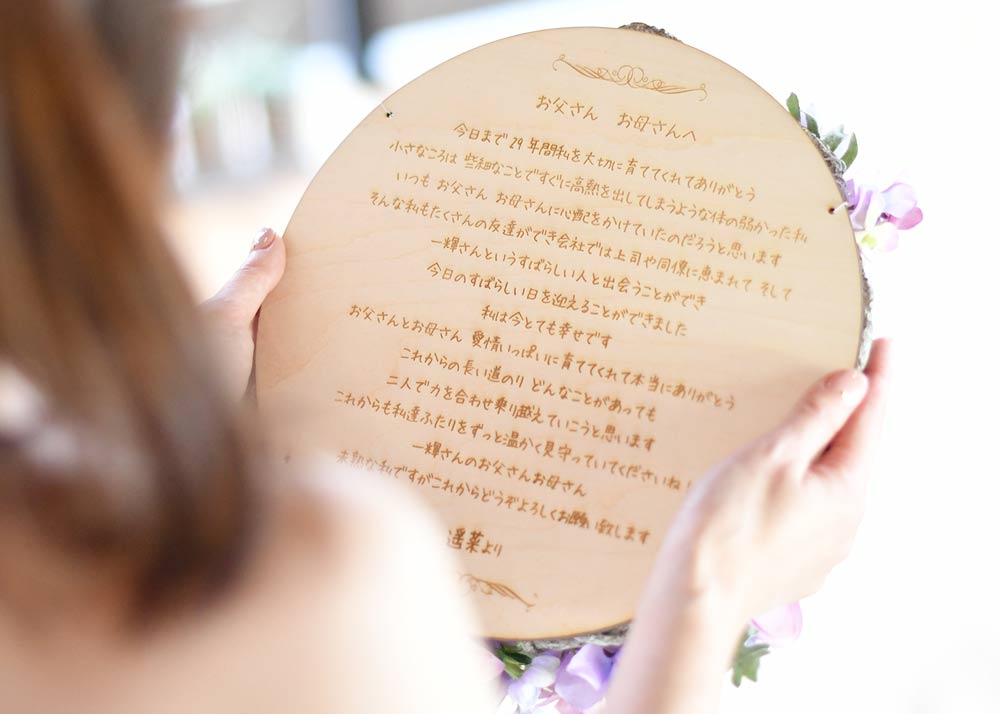 お父さん お母さんへ
今日まで29年間私を大切に育ててくれてありがとう
小さなころは 些細なことですぐに高熱を出してしまうような体の弱かった私
いつも お父さん お母さんに心配をかけていたのだろうと思います
そんな私もたくさんの友達ができ会社では上司や同僚に恵まれて そして
一輝さんというすばらしい人と出会うことができ
今日のすばらしい日を迎えることができました
私は今とても幸せです
お父さんとお母さん 愛情いっぱいに育ててくれて本当にありがとう
これからの長い道のり どんなことがあっても
二人で力を合わせ乗り越えていこうと思います
これからも私達ふたりをずっと温かく見守っていてくださいね!
一輝さんのお父さんお母さん
未熟な私ですがこれからどうぞよろしくお願い致します
遥菜より